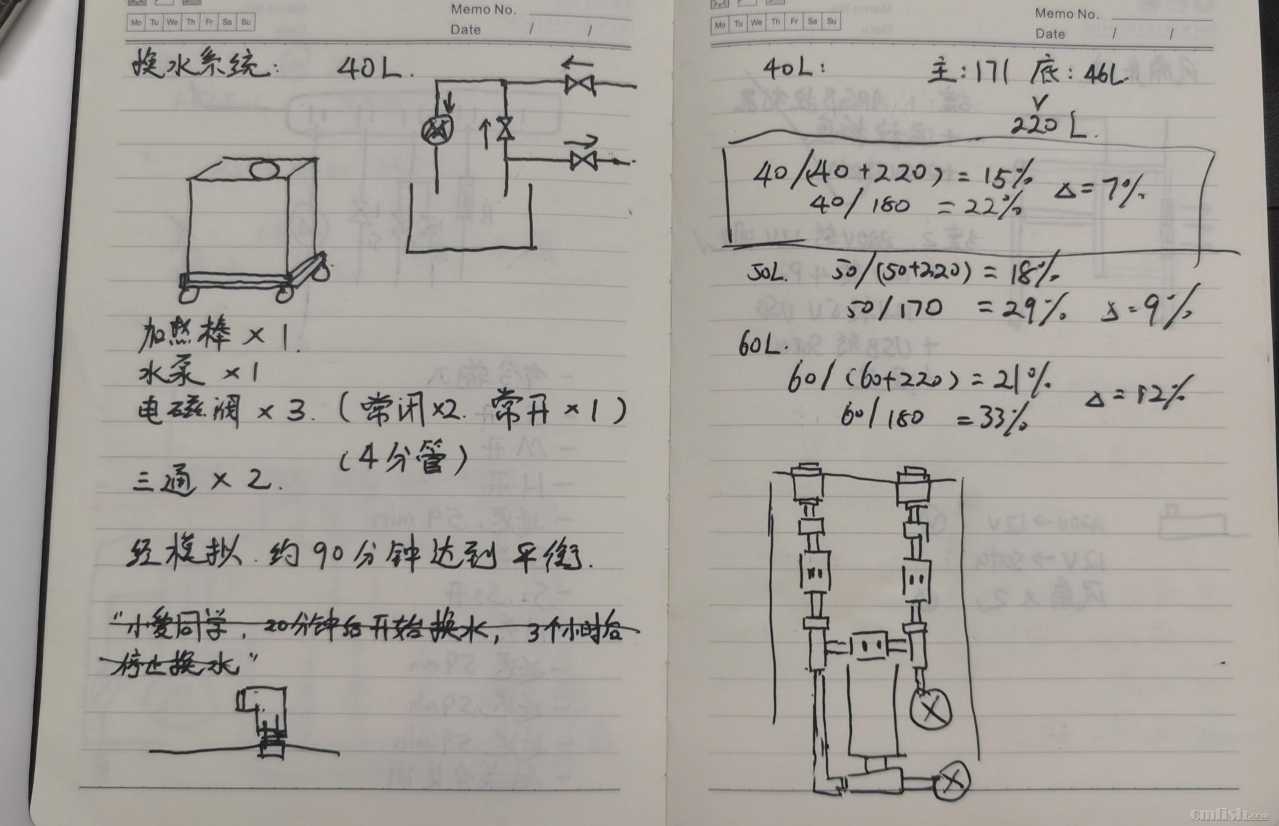 Mo Tu We Th Fr Sa Su
Memo No.
Date / /
换水系统: 40L.
加热棒 × 1.
水泵 × 1
电磁阀 × 3. (常闭×2. 常开×1)
(4分管)
三通 × 2.
经模拟. 约90分钟达到平衡.
"小爱同学, 20分钟后开始换水, 3个小时后
停止换水"
Mo Tu We Th Fr Sa Su
Memo No.
Date / /
40L: 主:171 底:46L.
220L.
40/(40+220) = 15% Δ=7%
40/180 = 22%
50L. 50/(50+220) = 18%
50/170 = 29% Δ=9%
60L.
60/(60+220) = 21% Δ=12%
60/180 = 33%
cmfish.com